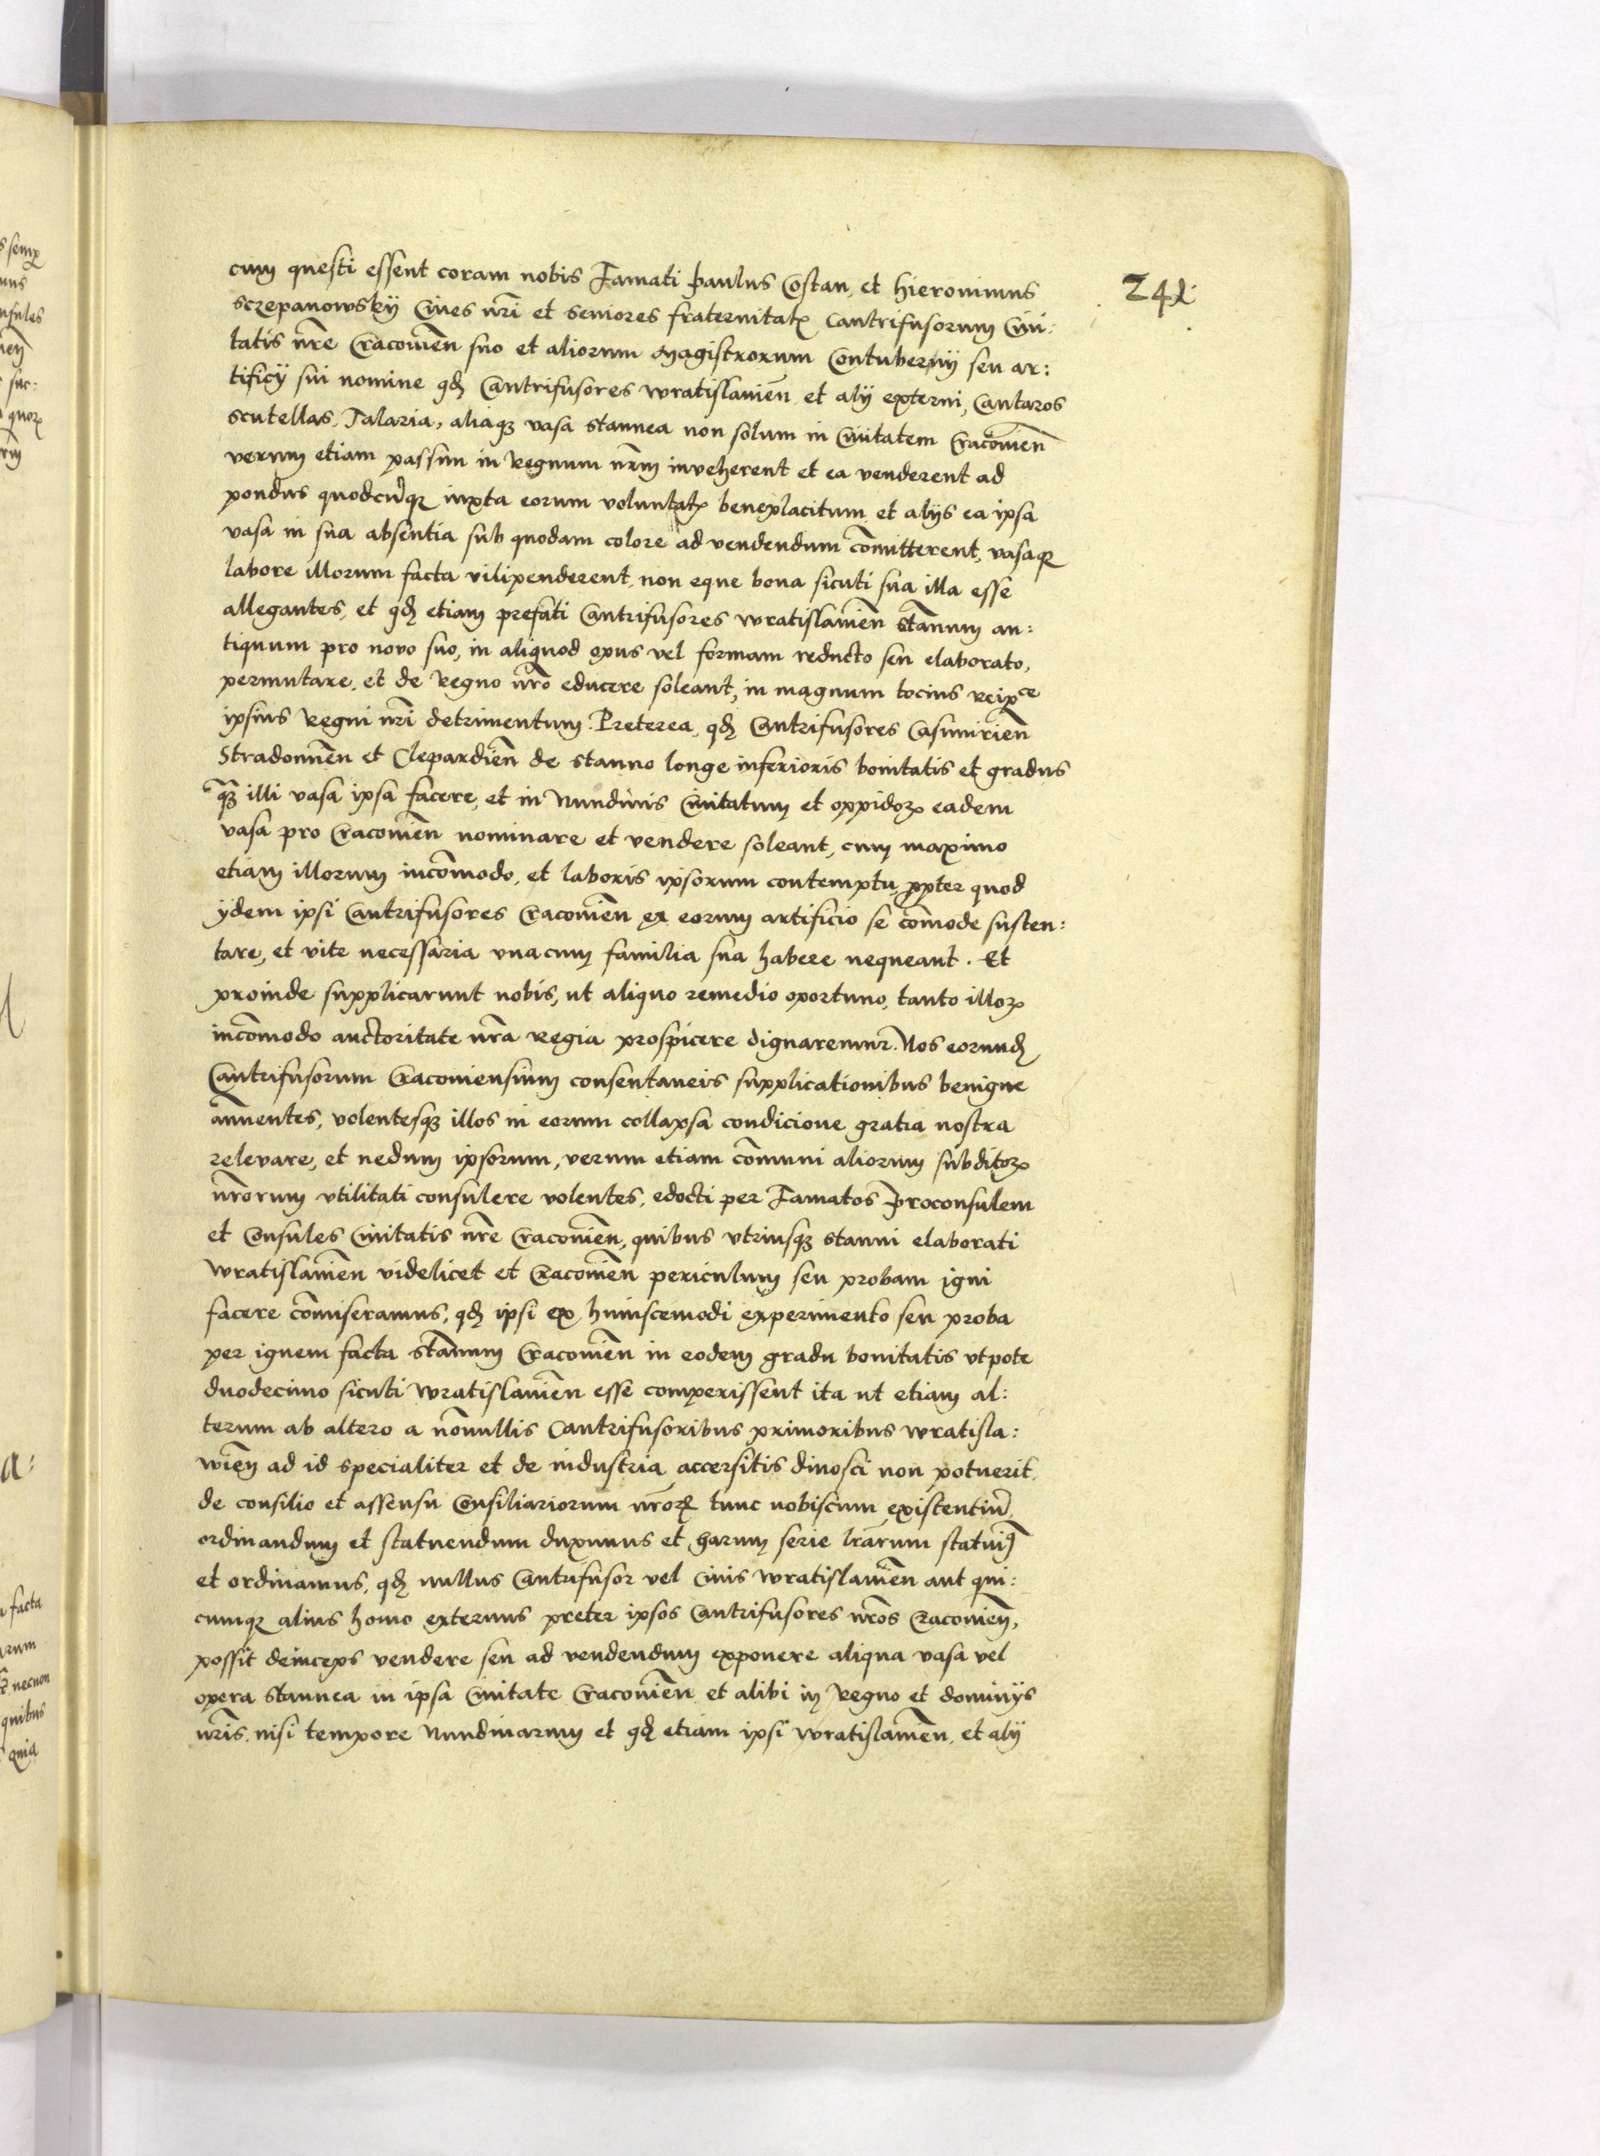 cum questi essent coram nobis Famati Paulus Costan, et Hieronimus
241
sczepanowskÿ Ciues nr̄i et seniores fraternitatꝭ Cantrifusorum Ciui:
tatis nr̄e Cracouien̄ suo et aliorum magistrorum Contubernÿ seu ar:
tificÿ sui nomine qđ Cantrifusores wratislauien̄ et alÿ externi, Cantaros
scutellas, Talaria, aliaqꝫ vasa stannea non solum in Ciuitatem Cracouien̄
verum etiam passim in Regnum nr̄m inveherent et ea venderent ad
pondus quodcūqꝫ iuxta eorum voluntatꝭ beneplacitum et alÿs ea ipsa
vasa in sua absentia sub quodam colore ad vendendum com̄itterent, vasaqꝫ
labore illorum facta vilipenderent, non eque bona sicuti sua illa esse
allegantes, et qđ etiam prefati Cantrifusores wratislauien̄ stan̄um an:
tiquum pro novo suo, in aliquod opus vel formam reducto seu elaborato,
permutare, et de Regno nr̄o educere soleant, in magnum tocius reipce
ipsius Regni nr̄i detrimentum. Preterea, qđ Cantrifusores Casimirien̄
Stradomien̄ et Clepardien̄ de stanno longe inferioris bonitatis et gradus
qꝫ illi vasa ipsa facere, et in Nundinis Ciuitatum et oppidoꝝ eadem
vasa pro Cracouien̄ nominare et vendere soleant, cum maximo
etiam illorum incom̄odo, et laboris ipsorum contemptu, ꝓpter quod
ÿdem ipsi Cantrifusores Cracouien̄ ex eorum artificio se com̄ode susten:
tare, et vite necessaria vnacum familia sua habere nequeant. Et
proinde supplicarunt nobis, ut aliquo remedio oportuno, tanto illoꝝ
incom̄odo auctoritate nr̄a Regia prospicere dignaremur. Nos eorunđ
Cantrifusorum Cracouiensium consentaneis supplicationibus benigne
an̄uentes, volentesqꝫ illos in eorum collapsa condicione gratia nostra
relevare, et nedum ipsorum, verum etiam com̄uni aliorum subditoꝝ
nr̄orum vtilitati consulere volentes, edocti per Famatos Proconsulem
et Consules Ciuitatis nr̄e Cracouien̄, quibus vtriusqꝫ stanni elaborati
wratislauien̄ videlicet et Cracouien̄ periculum seu probam igni
facere com̄iseramus, qđ ipsi ex huiuscemodi experimento seu proba
per ignem facta stan̄um Cracouien̄ in eodem gradu bonitatis vtpote
duodecimo sicuti wratislauien̄ esse comperissent ita ut etiam al:
terum ab altero a non̄ullis Cantrifusoribus primoribus wratisla:
wien̄ ad id specialiter et de industria accersitis dinosci non potuerit,
de consilio et assensu Consiliariorum nr̄oꝝ tunc nobiscum existentiū
ordinandum et statuendum duximus et harum serie lr̄arum statuimꝰ
et ordinamus, qđ nullus Cantrifusor vel Ciuis wratislauien̄ aut qui:
cumqꝫ alius homo externus preter ipsos Cantrifusores nr̄os Cracouien̄,
possit deinceps vendere seu ad vendendum exponere aliqua vasa vel
opera stannea in ipsa Ciuitate Cracouien̄ et alibi in Regno et dominÿs
nr̄is, nisi tempore Nundinarum et qđ etiam ipsi wratislauien̄, et alÿ